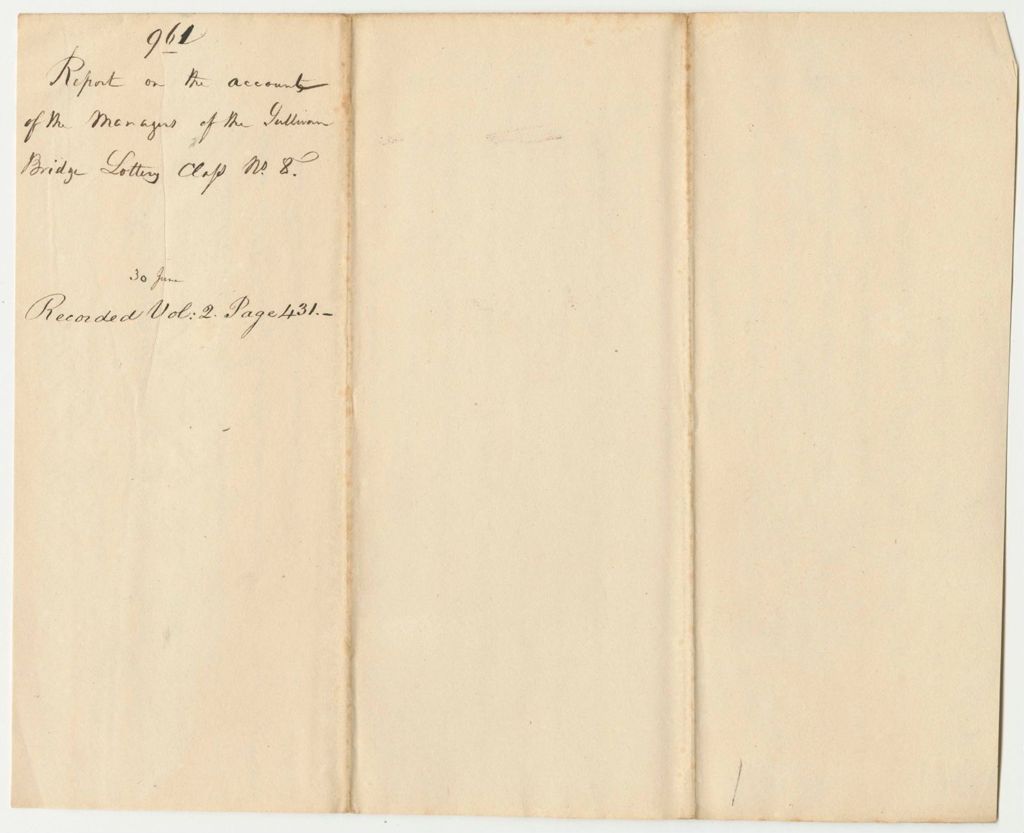 961
Report on the accounts
of the Managers of the Sullivan
Bridge Lottery Class No. 8.
30 June
Recorded Vol: 2. Page 431.-